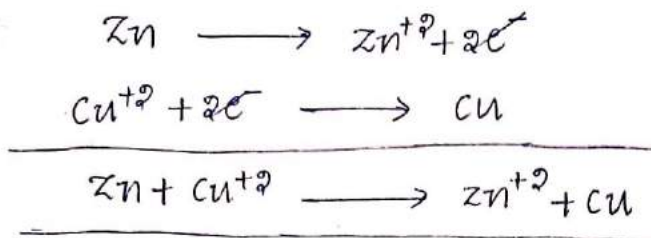 Zn ⟶ Zn⁺² + 2e⁻
Cu⁺² + 2e⁻ ⟶ Cu
Zn + Cu⁺² ⟶ Zn⁺² + Cu